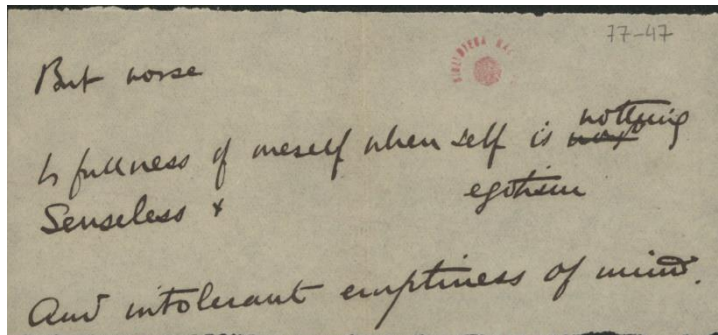 77-47
BIBLIOTECA NA
But worse
Is fullness of meself when self is nothing
Senseless + egotism
And intolerant emptiness of mind.